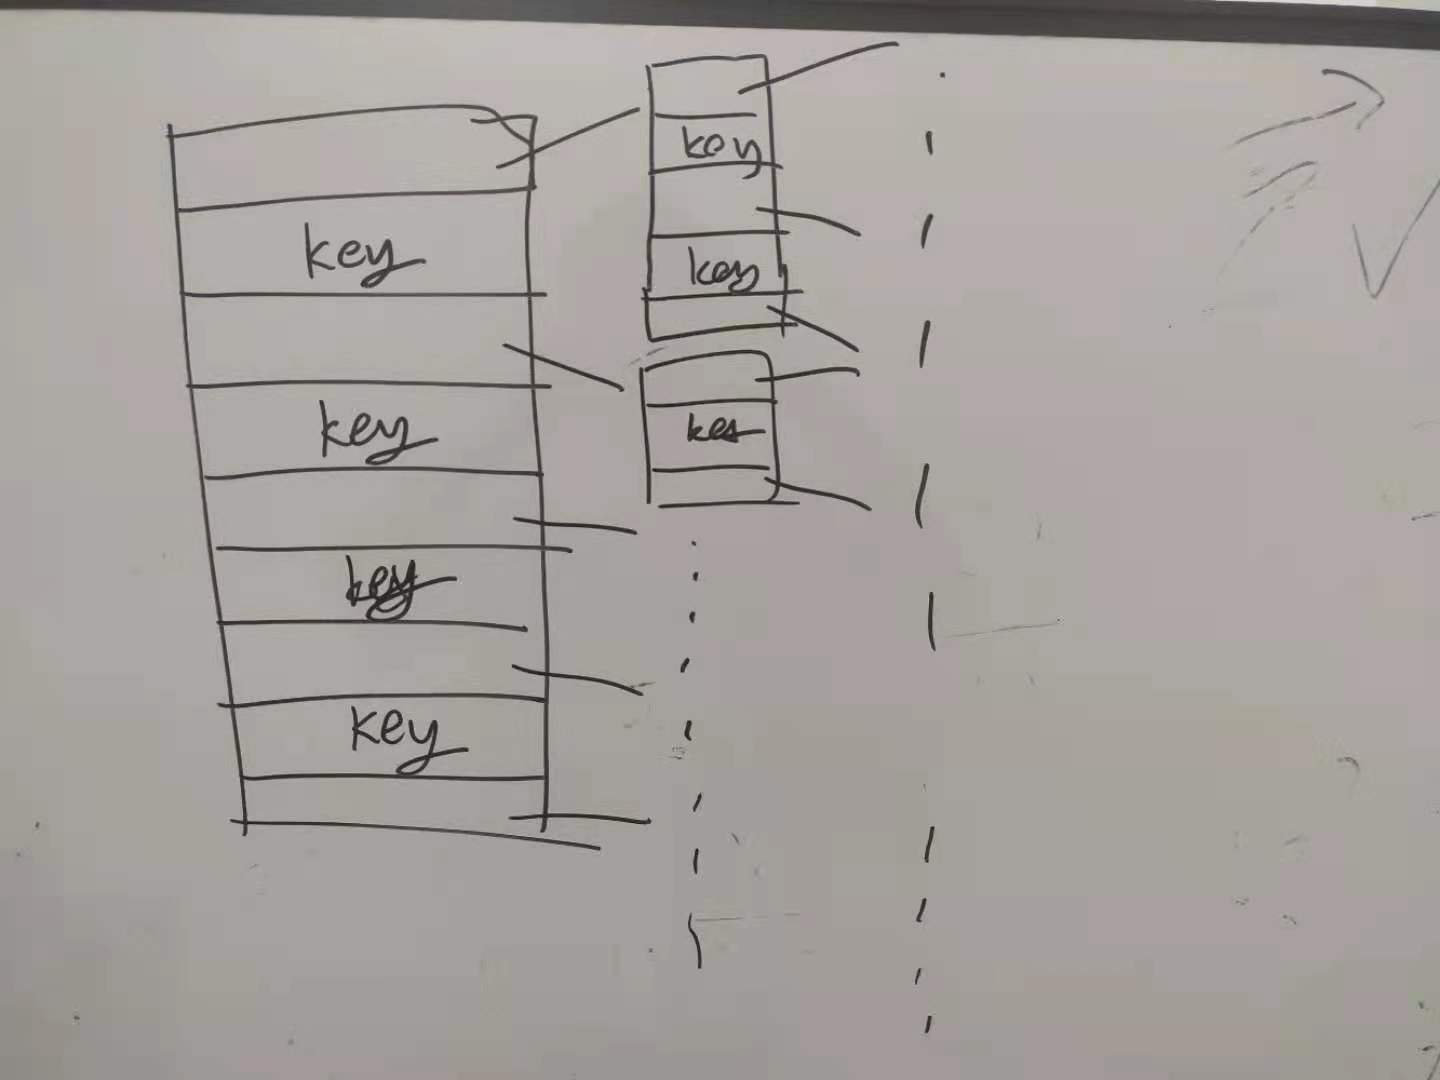 key
key
key
key
key
key
key